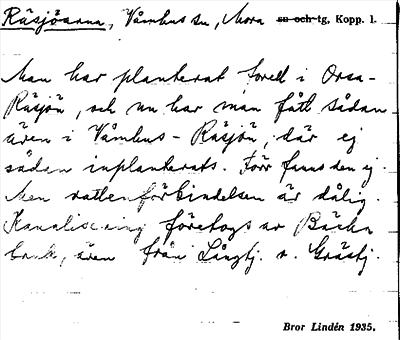 Räsjöarna, Våmhus sn, Mora sn och tg, Kopp. l.
Man har planterat forell i Orsa-
Räsjön, och nu har man fått sådan
även i Våmhus-Räsjön, där ej
sådan inplanterats. Förr fanns den ej.
Men vattenförbindelsen är dålig.
Kanalisering företogs av Bäcka
bäck, även från Långtj. o. Grästj.
Bror Lindén 1935.